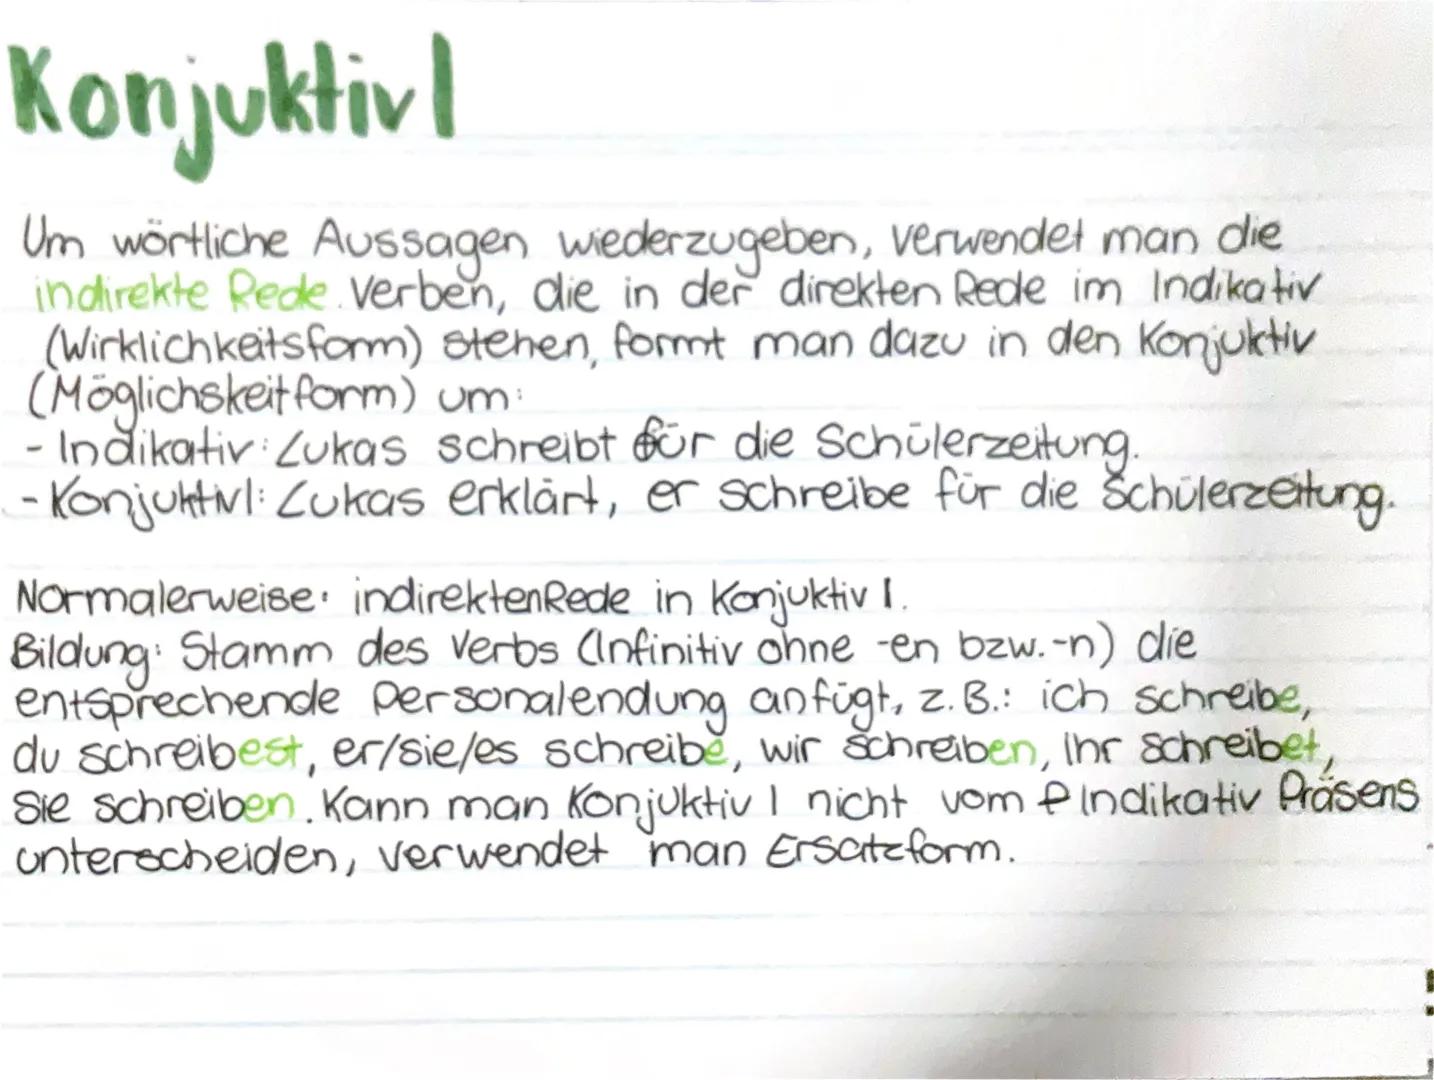 Konjuktiv I
Um wörtliche Aussagen wiederzugeben, verwendet man die
indirekte Rede. Verben, die in der direkten Rede im Indikativ
(Wirklichkeitsform) stehen, formt man dazu in den Konjuktiv
(Möglichskeitform) um:
- Indikativ: Lukas schreibt für die Schülerzeitung.
- Konjuktiv I: Lukas erklärt, er schreibe für die Schülerzeitung.
Normalerweise: indirekten Rede in Konjuktiv I.
Bildung: Stamm des Verbs (Infinitiv ohne -en bzw. -n) die
entsprechende Personalendung anfügt, z.B.: ich schreibe,
du schreibest, er/sie/es schreibe, wir schreiben, Ihr schreibet,
Sie schreiben. Kann man Konjuktiv I nicht vom Indikativ Präsens
unterscheiden, verwendet man Ersatzform.